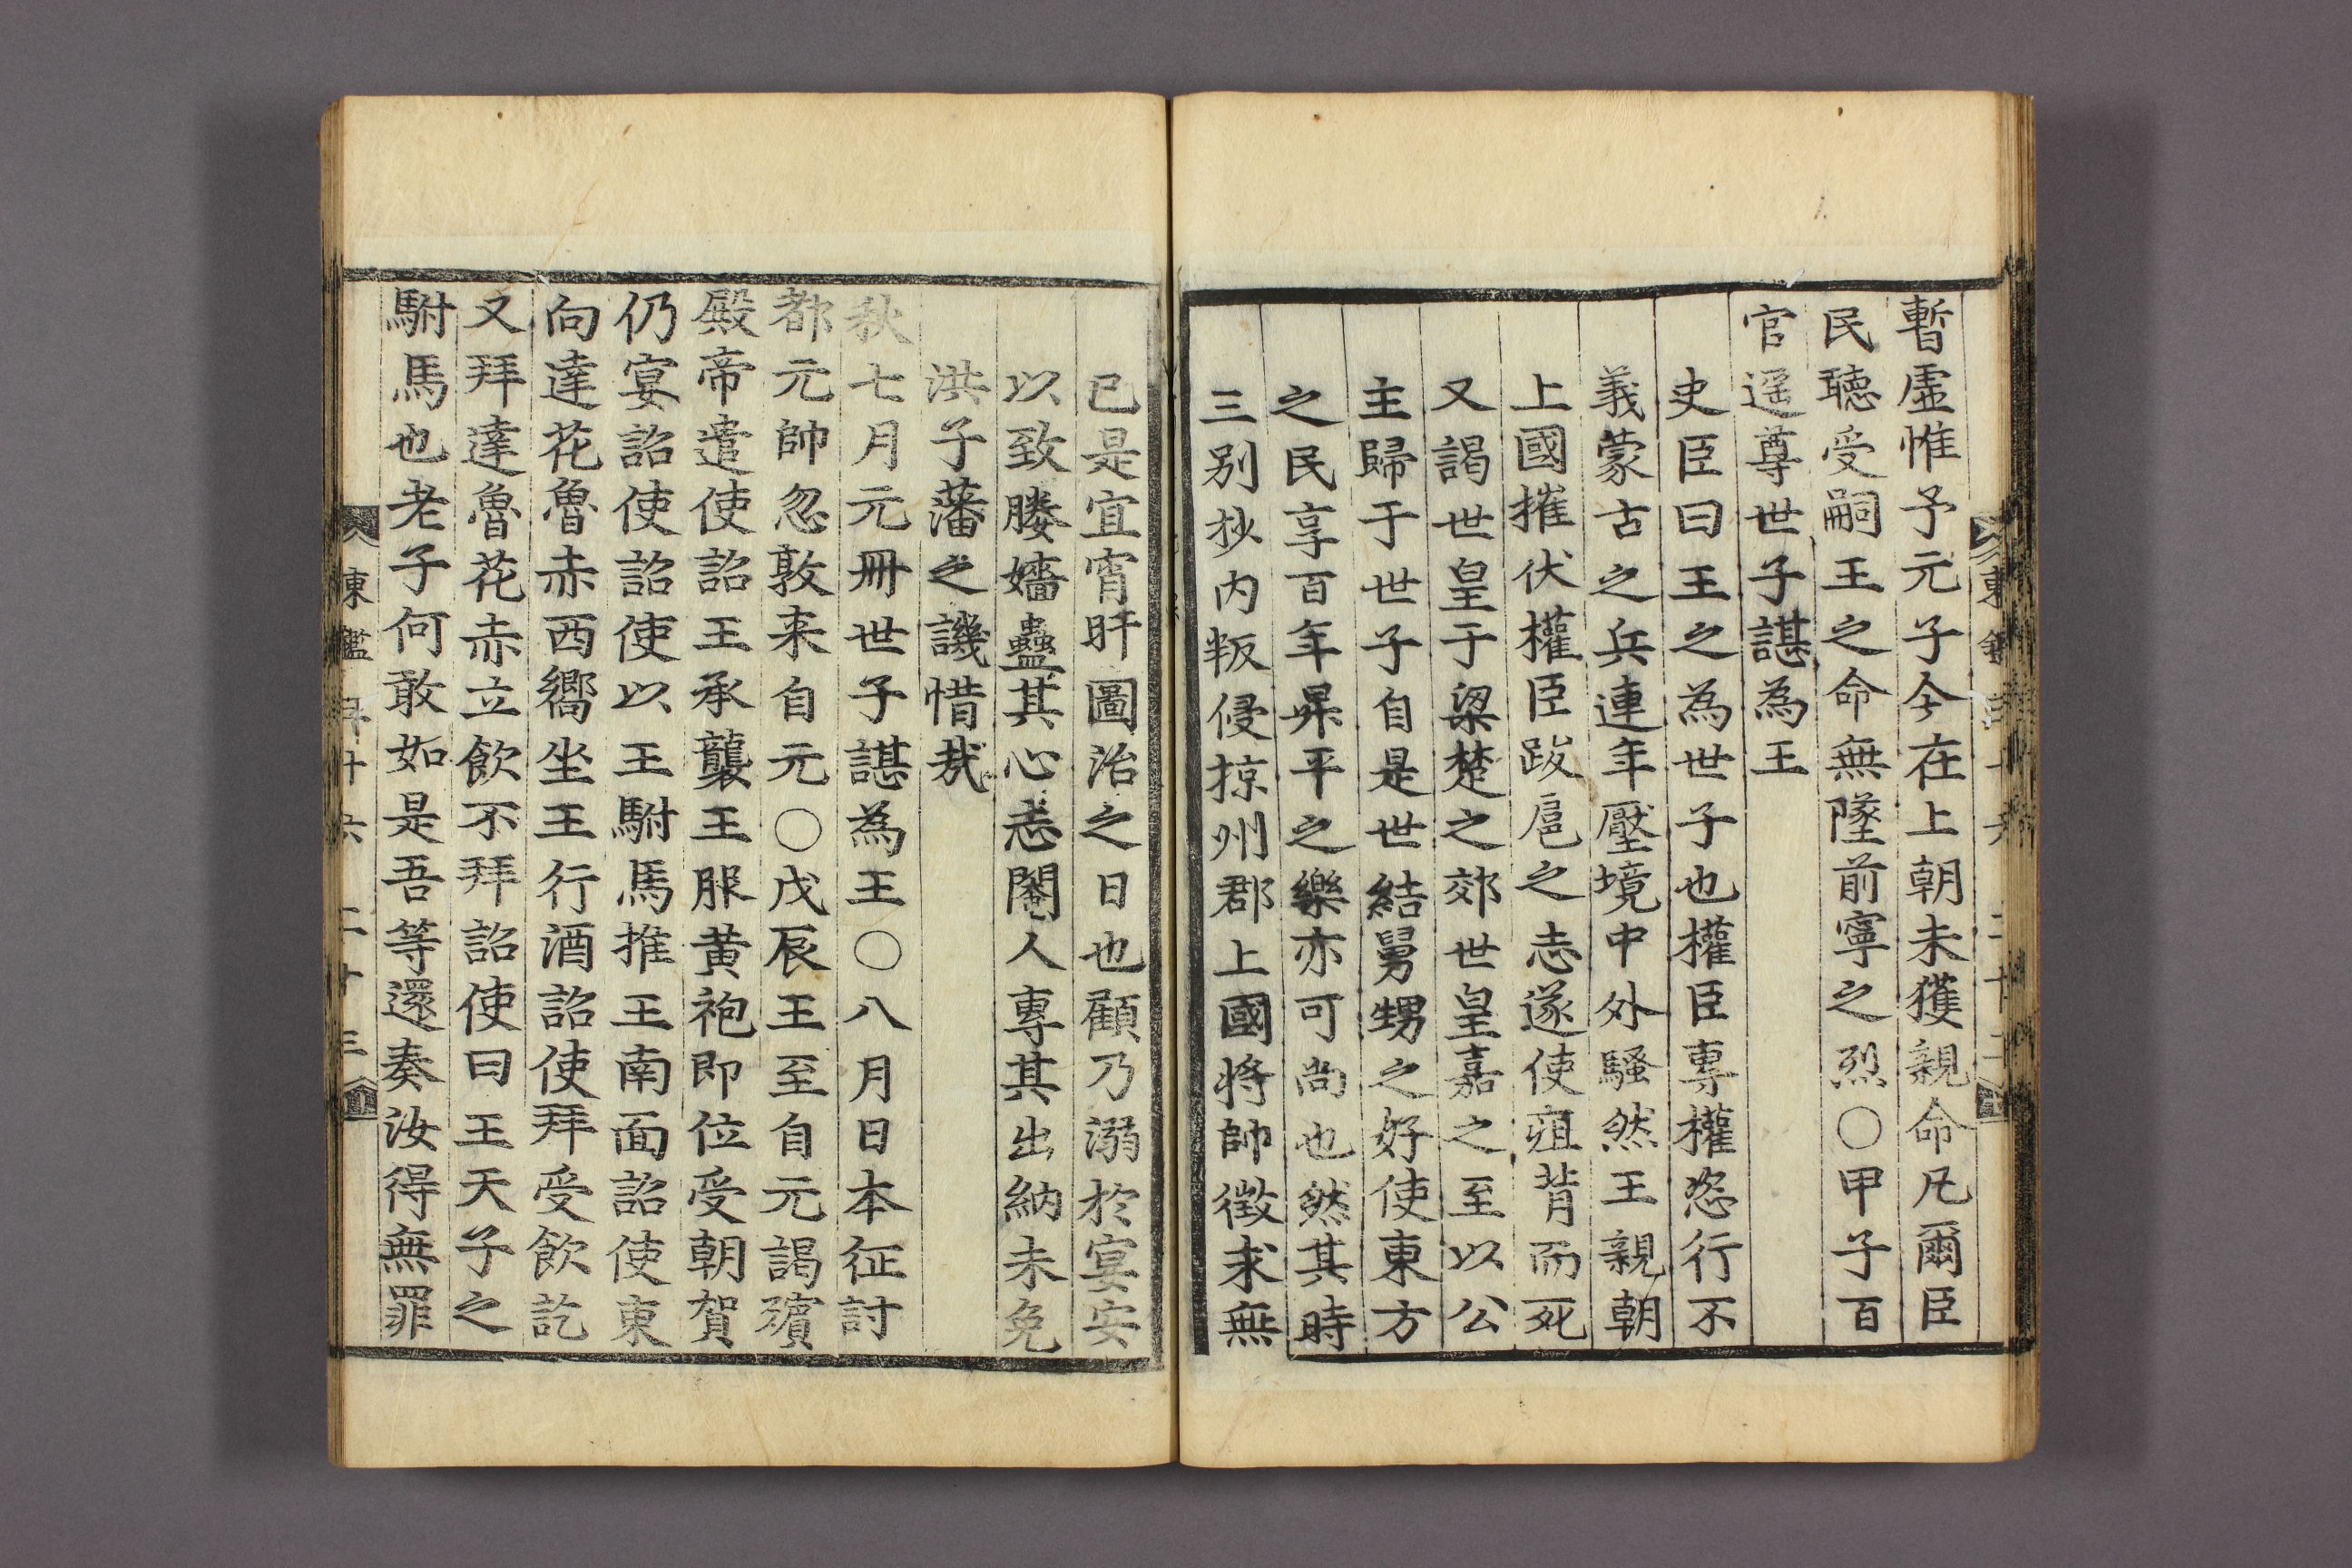 暫虛惟予元子今在上朝未獲親命凡爾臣
民聽受嗣王之命無墜前寧之烈○甲子百
官遥尊世子諶為王
史臣曰王之為世子也權臣專權恣行不
義蒙古之兵連年壓境中外騷然王親朝
上國摧伏權臣跋扈之志遂使疽背而死
又謁世皇于梁楚之郊世皇嘉之至以公
主歸于世子自是世結舅甥之好使東方
之民享百年昇平之樂亦可尚也然其時
三别抄内叛侵掠州郡上國將帥徵求無
已是宜宵旰圖治之日也顧乃溺於宴安
以致媵嬙蠱其心志閹人專其出納未免
洪子藩之譏惜㦲
秋七月元冊世子諶為王○八月日本征討
都元帥忽敦来自元○戊辰王至自元謁殯
殿帝遣使詔王承襲王服黄袍即位受朝賀
仍宴詔使詔使以王駙馬推王南面詔使東
向達花魯赤西嚮坐王行酒詔使拜受飲訖
又拜達魯花赤立飲不拜詔使曰王天子之
駙馬也老子何敢如是吾等還奏汝得無罪
東鑑 二十三